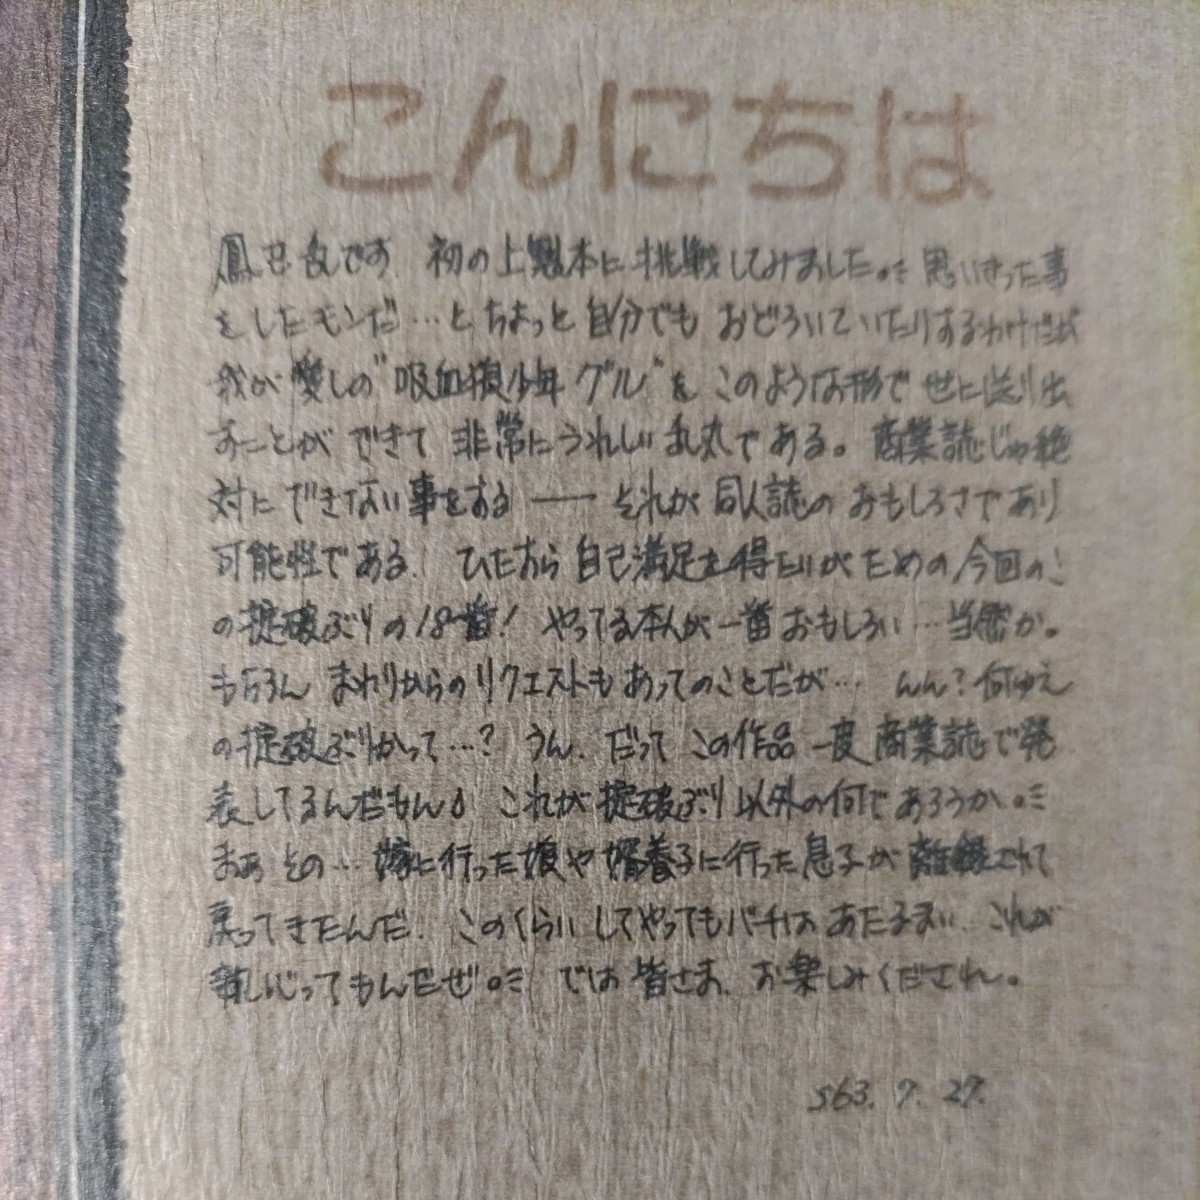 こんにちは
鳳己乱です. 初の上製本に挑戦してみました。思いきった事
をしたモンだ…と、ちょっと自分でも おどろいていたりするわけだが
我が愛しの"吸血狼少年 グル"を このような形で 世に送り出
すことが できて 非常にうれしい 乱丸である。商業誌じゃ絶
対に できない事をする ── それが 同人誌の おもしろさであり
可能性である. ひたすら 自己満足を得たいが ための 今回のこ
の掟破ぶりの18番! やってる本人が 一番 おもしろい…当然か。
もちろん まわりからのリクエストも あってのことだが… んん?何ゆえ
の掟破ぶりかって…? うん. だって この作品 一度 商業誌で発
表してるんだもん♪ これが 掟破ぶり以外の何であろうか。
まぁ その… 嫁に行った娘や 婿養子に行った息子が 離縁されて
戻ってきたんだ. このくらい してやってもバチは あたるまい. これが
親心ってもんだぜ。 では 皆さま. お楽しみくだされ。
S63. 7. 27.